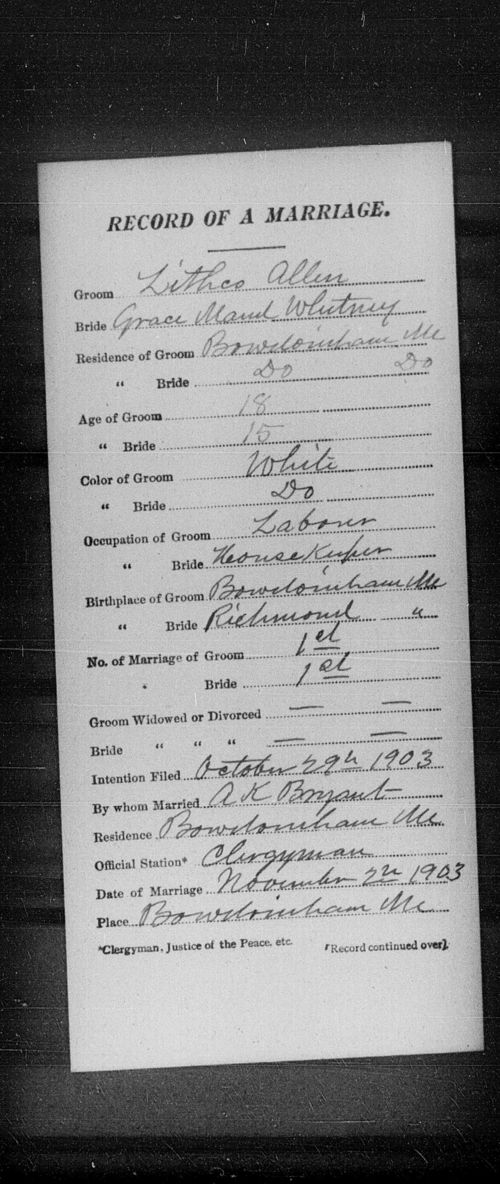 RECORD OF A MARRIAGE.
Groom Lithco Allen
Bride Grace Maud Whitney
Residence of Groom Bowdoinham Me
" Bride Do Do
Age of Groom 18
" Bride 15
Color of Groom White
" Bride Do
Occupation of Groom Laborer
" Bride House Keeper
Birthplace of Groom Bowdoinham Me
" Bride Richmond "
No. of Marriage of Groom 1st
" Bride 1st
Groom Widowed or Divorced — —
Bride " " " — —
Intention Filed October 29th 1903
By whom Married A K Bryant
Residence Bowdoinham Me
Official Station* Clergyman
Date of Marriage November 2nd 1903
Place Bowdoinham Me
*Clergyman, Justice of the Peace, etc. [Record continued over].